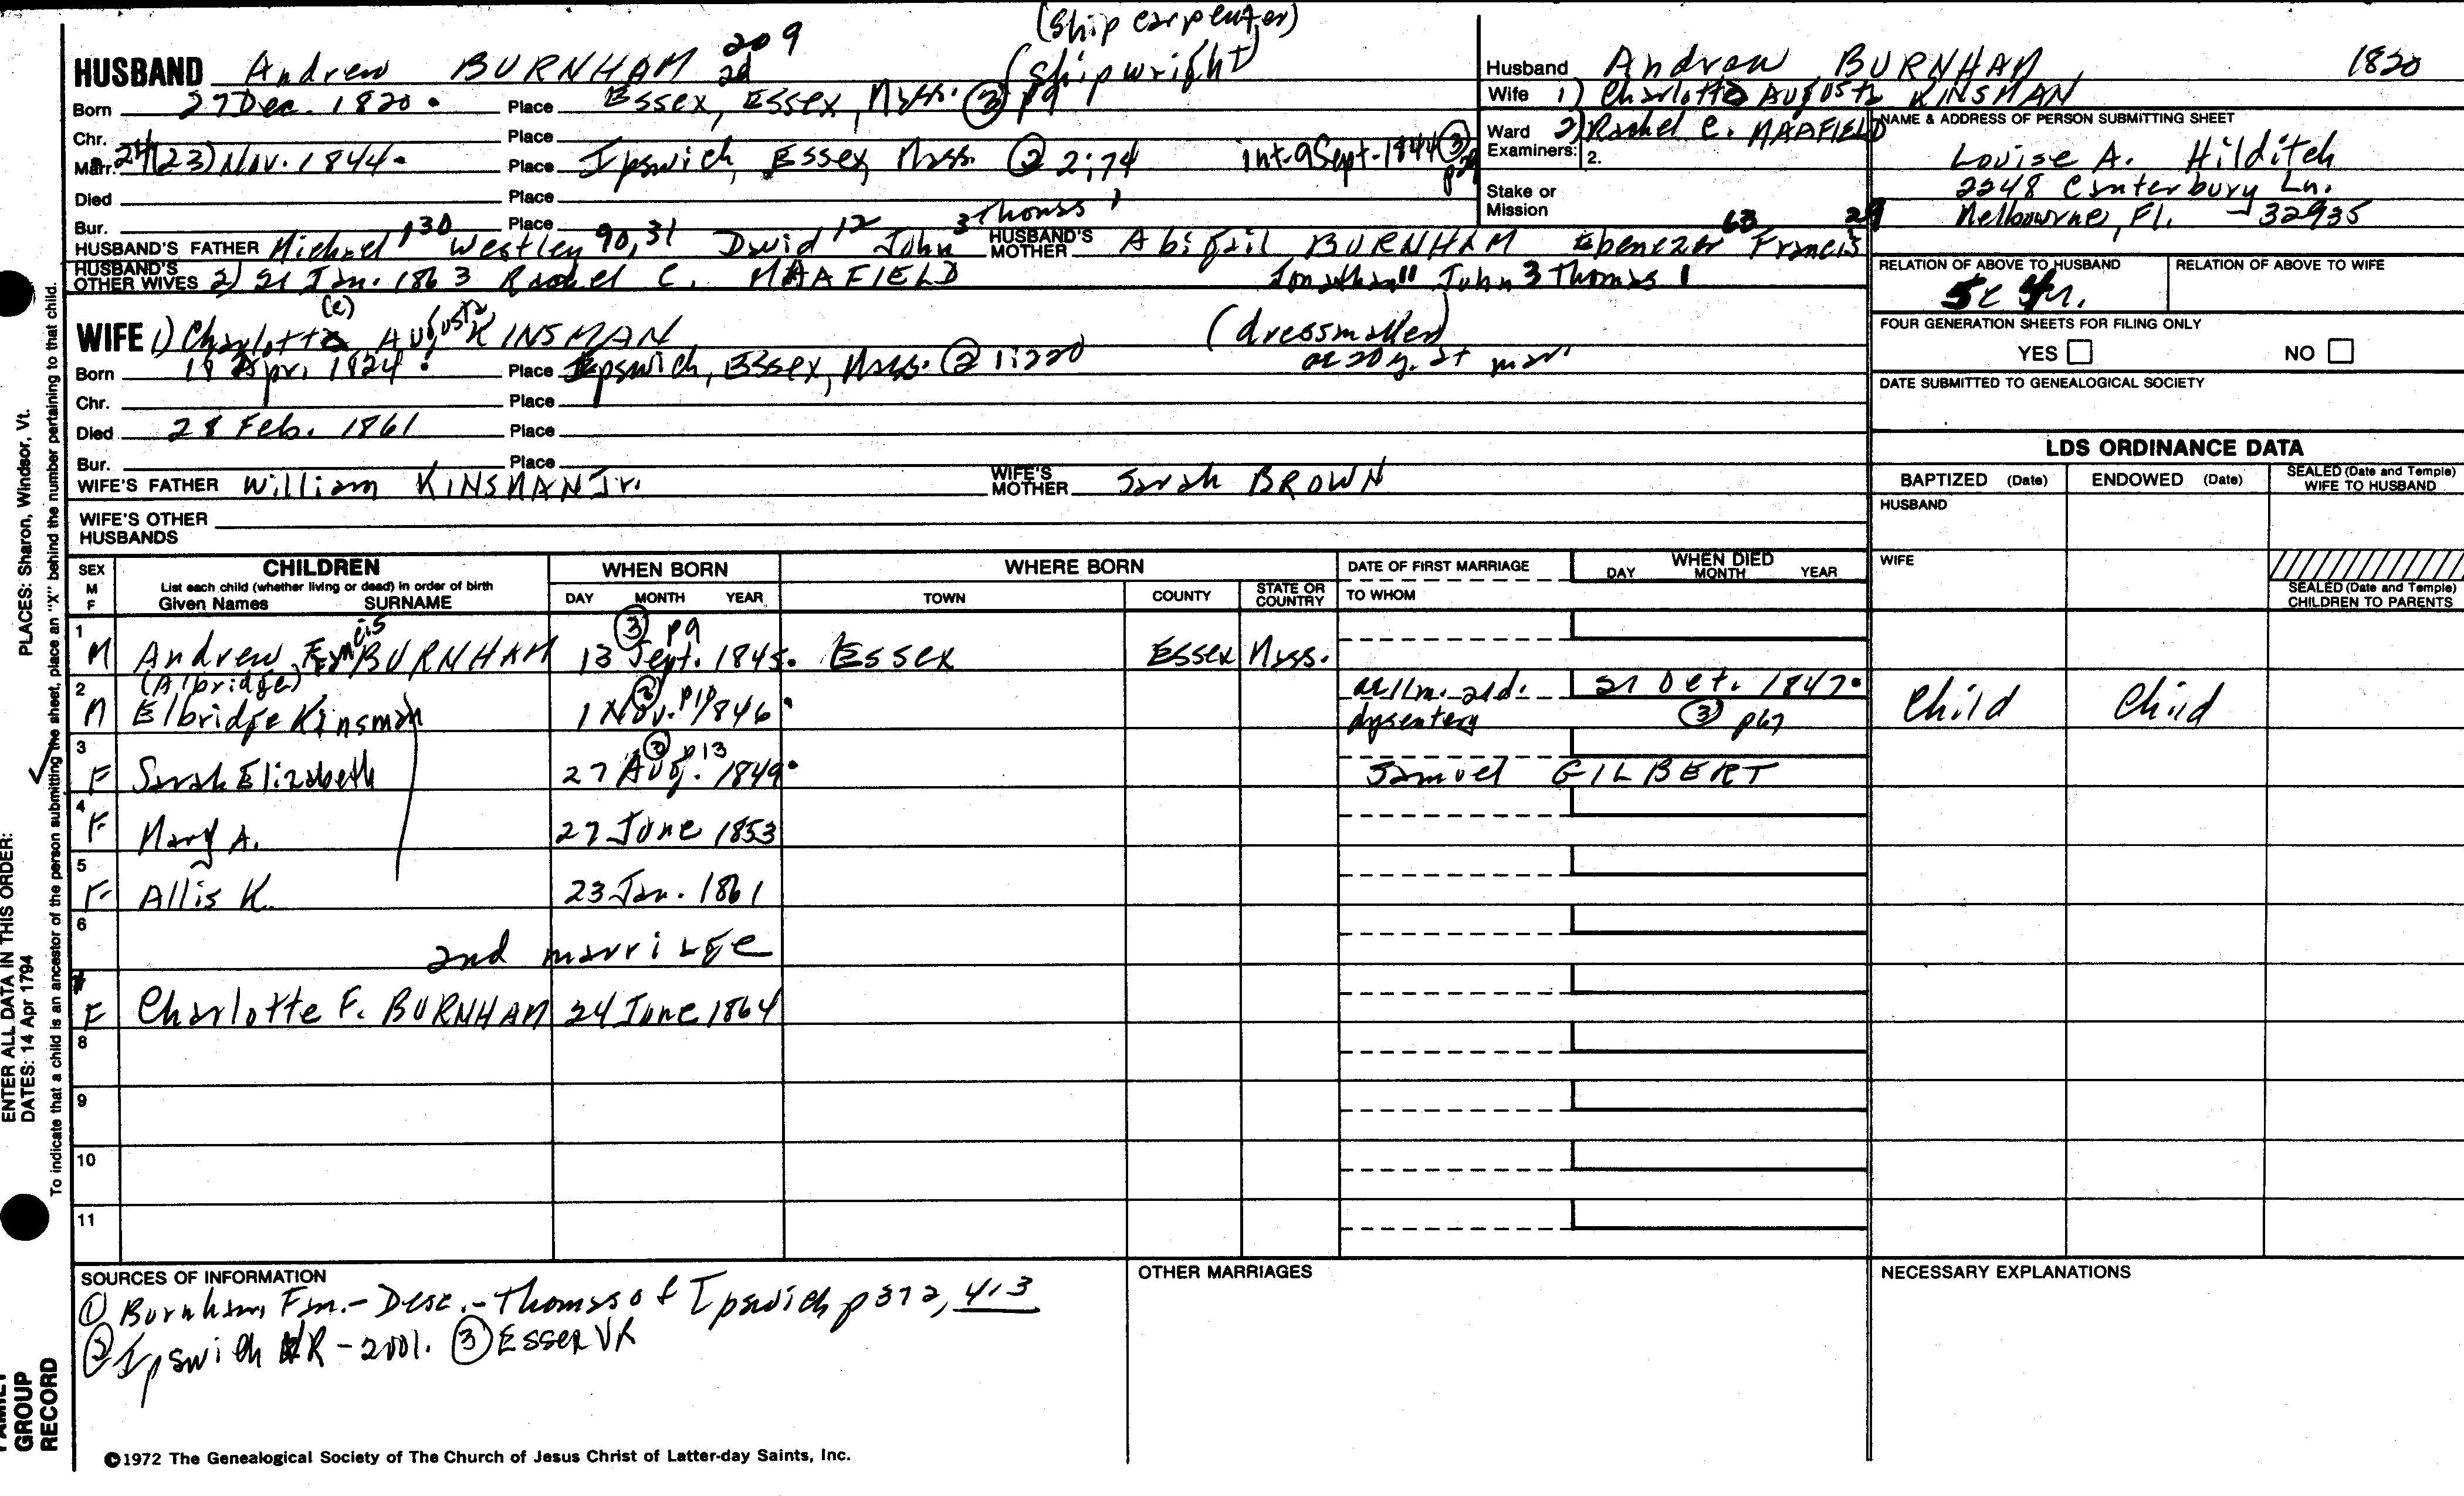 (Ship carpenter)
HUSBAND Andrew BURNHAM 2d 209 (shipwright)
Born 27 Dec. 1820. Place Essex, Essex, Mass. (3) p9
Chr. Place
Marr. 24(23) Nov. 1844. Place Ipswich, Essex, Mass. (2) 2;74 int-9 Sept-1844 (3)
Died Place
Bur. Place
HUSBAND'S FATHER Michael 130 Westley 90,31 David 12 John 3 Thomas 1 HUSBAND'S MOTHER Abigail BURNHAM Ebenezer 63 Francis 29
HUSBAND'S OTHER WIVES 2) 21 Jan. 1863 Rachel C. MAAFIELD Jonathan 11 John 3 Thomas 1
WIFE 1) Charlotta (e) Augusta KINSMAN (dressmaker)
Born 18 Apr. 1824. Place Ipswich, Essex, Mass. (2) 1:220 ae 20 y. at mar.
Chr. Place
Died 28 Feb. 1861 Place
Bur. Place
WIFE'S FATHER William KINSMAN Jr. WIFE'S MOTHER Sarah BROWN
WIFE'S OTHER HUSBANDS
Husband Andrew BURNHAM 1820
Wife 1) Charlotte Augusta KINSMAN
2) Rachel C. MAAFIELD
Ward
Examiners: 2.
Stake or
Mission
NAME & ADDRESS OF PERSON SUBMITTING SHEET
Louise A. Hilditch
2248 Canterbury Ln.
Melbourne, Fl. - 32935
RELATION OF ABOVE TO HUSBAND RELATION OF ABOVE TO WIFE
5c 4r.
FOUR GENERATION SHEETS FOR FILING ONLY
YES NO
DATE SUBMITTED TO GENEALOGICAL SOCIETY
LDS ORDINANCE DATA
BAPTIZED (Date) ENDOWED (Date) SEALED (Date and Temple) WIFE TO HUSBAND
HUSBAND
WIFE
SEALED (Date and Temple) CHILDREN TO PARENTS
SEX M F CHILDREN WHEN BORN WHERE BORN DATE OF FIRST MARRIAGE WHEN DIED
List each child (whether living or dead) in order of birth
Given Names SURNAME DAY MONTH YEAR TOWN COUNTY STATE OR COUNTRY TO WHOM DAY MONTH YEAR
1 M Andrew Francis BURNHAM (3) p9 13 Sept. 1845. Essex Essex Mass.
2 M (Albridge) Elbridge Kinsman (3) p10 1 Nov. 1846. ae 11m. 21d. dysentery 21 Oct. 1847. (3) p67 Child Child
3 F Sarah Elizabeth (3) p13 27 Aug. 1849. Samuel GILBERT
4 F Mary A. 27 June 1853
5 F Allis K. 23 Jan. 1861
6 2nd marriage
7 F Charlotte F. BURNHAM 24 June 1864
8
9
10
11
SOURCES OF INFORMATION
(1) Burnham Fam.- Desc.- Thomas of Ipswich p 372, 413
(2) Ipswich VR - 2001. (3) Essex VR
OTHER MARRIAGES
NECESSARY EXPLANATIONS
©1972 The Genealogical Society of The Church of Jesus Christ of Latter-day Saints, Inc.
PLACES: Sharon, Windsor, Vt.
ENTER ALL DATA IN THIS ORDER:
DATES: 14 Apr 1794
To indicate that a child is an ancestor of the person submitting the sheet, place an "X" behind the number pertaining to that child.
FAMILY
GROUP
RECORD